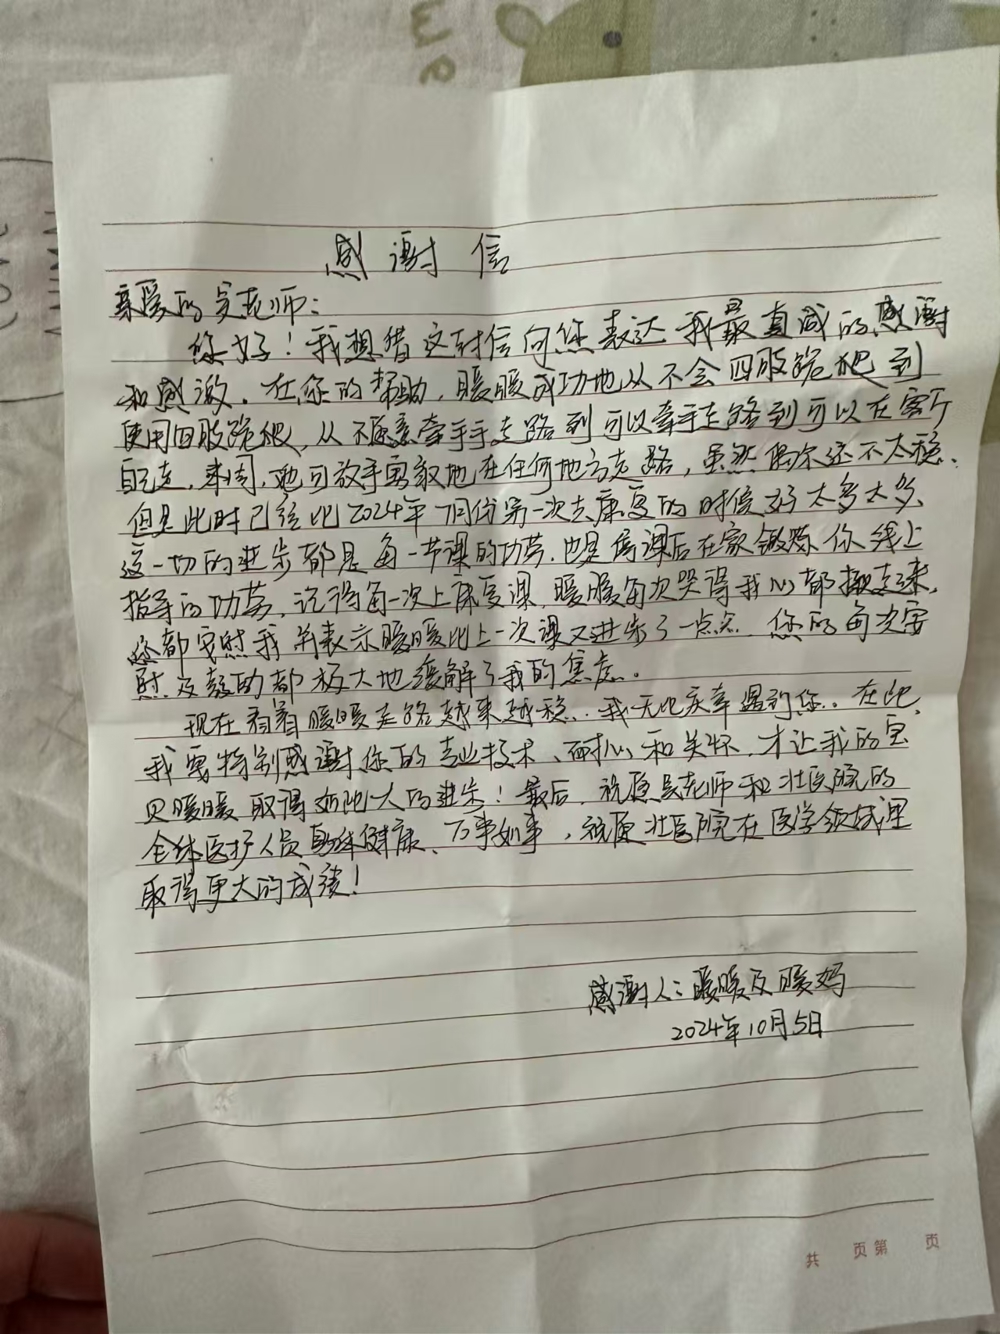 感谢信
亲爱的吴老师：
您好！我想借这封信向您表达我最真诚的感谢
和感激。在您的帮助，暖暖成功地从不会四肢跪爬到
使用四肢跪爬，从不愿意牵手走路到可以牵手走路到可以在客厅
自己走，本周，她可放手勇敢地在任何地方走路，虽然偶尔还不太稳、
但是此时已经比2024年7月份第一次去康复的时候好太多太多、
这一切的进步都是每一节课的功劳，也是每课后在家锻炼你线上
指导的功劳，记得每一次上康复课，暖暖每次哭得我心都揪起来，
您都安慰我并表示暖暖比上一次课又进步了一点点，您的每次安
慰及鼓励都极大地缓解了我的焦虑。
现在看着暖暖走路越来越稳，我无比庆幸遇到您，在此，
我要特别感谢您的专业技术、耐心和关怀，才让我的宝
贝暖暖取得如此大的进步！最后，祝愿吴老师和壮医院的
全体医护人员身体健康、万事如事，祝愿壮医院在医学领域里
取得更大的成绩！
感谢人：暖暖及暖妈
2024年10月5日
共 页第 页